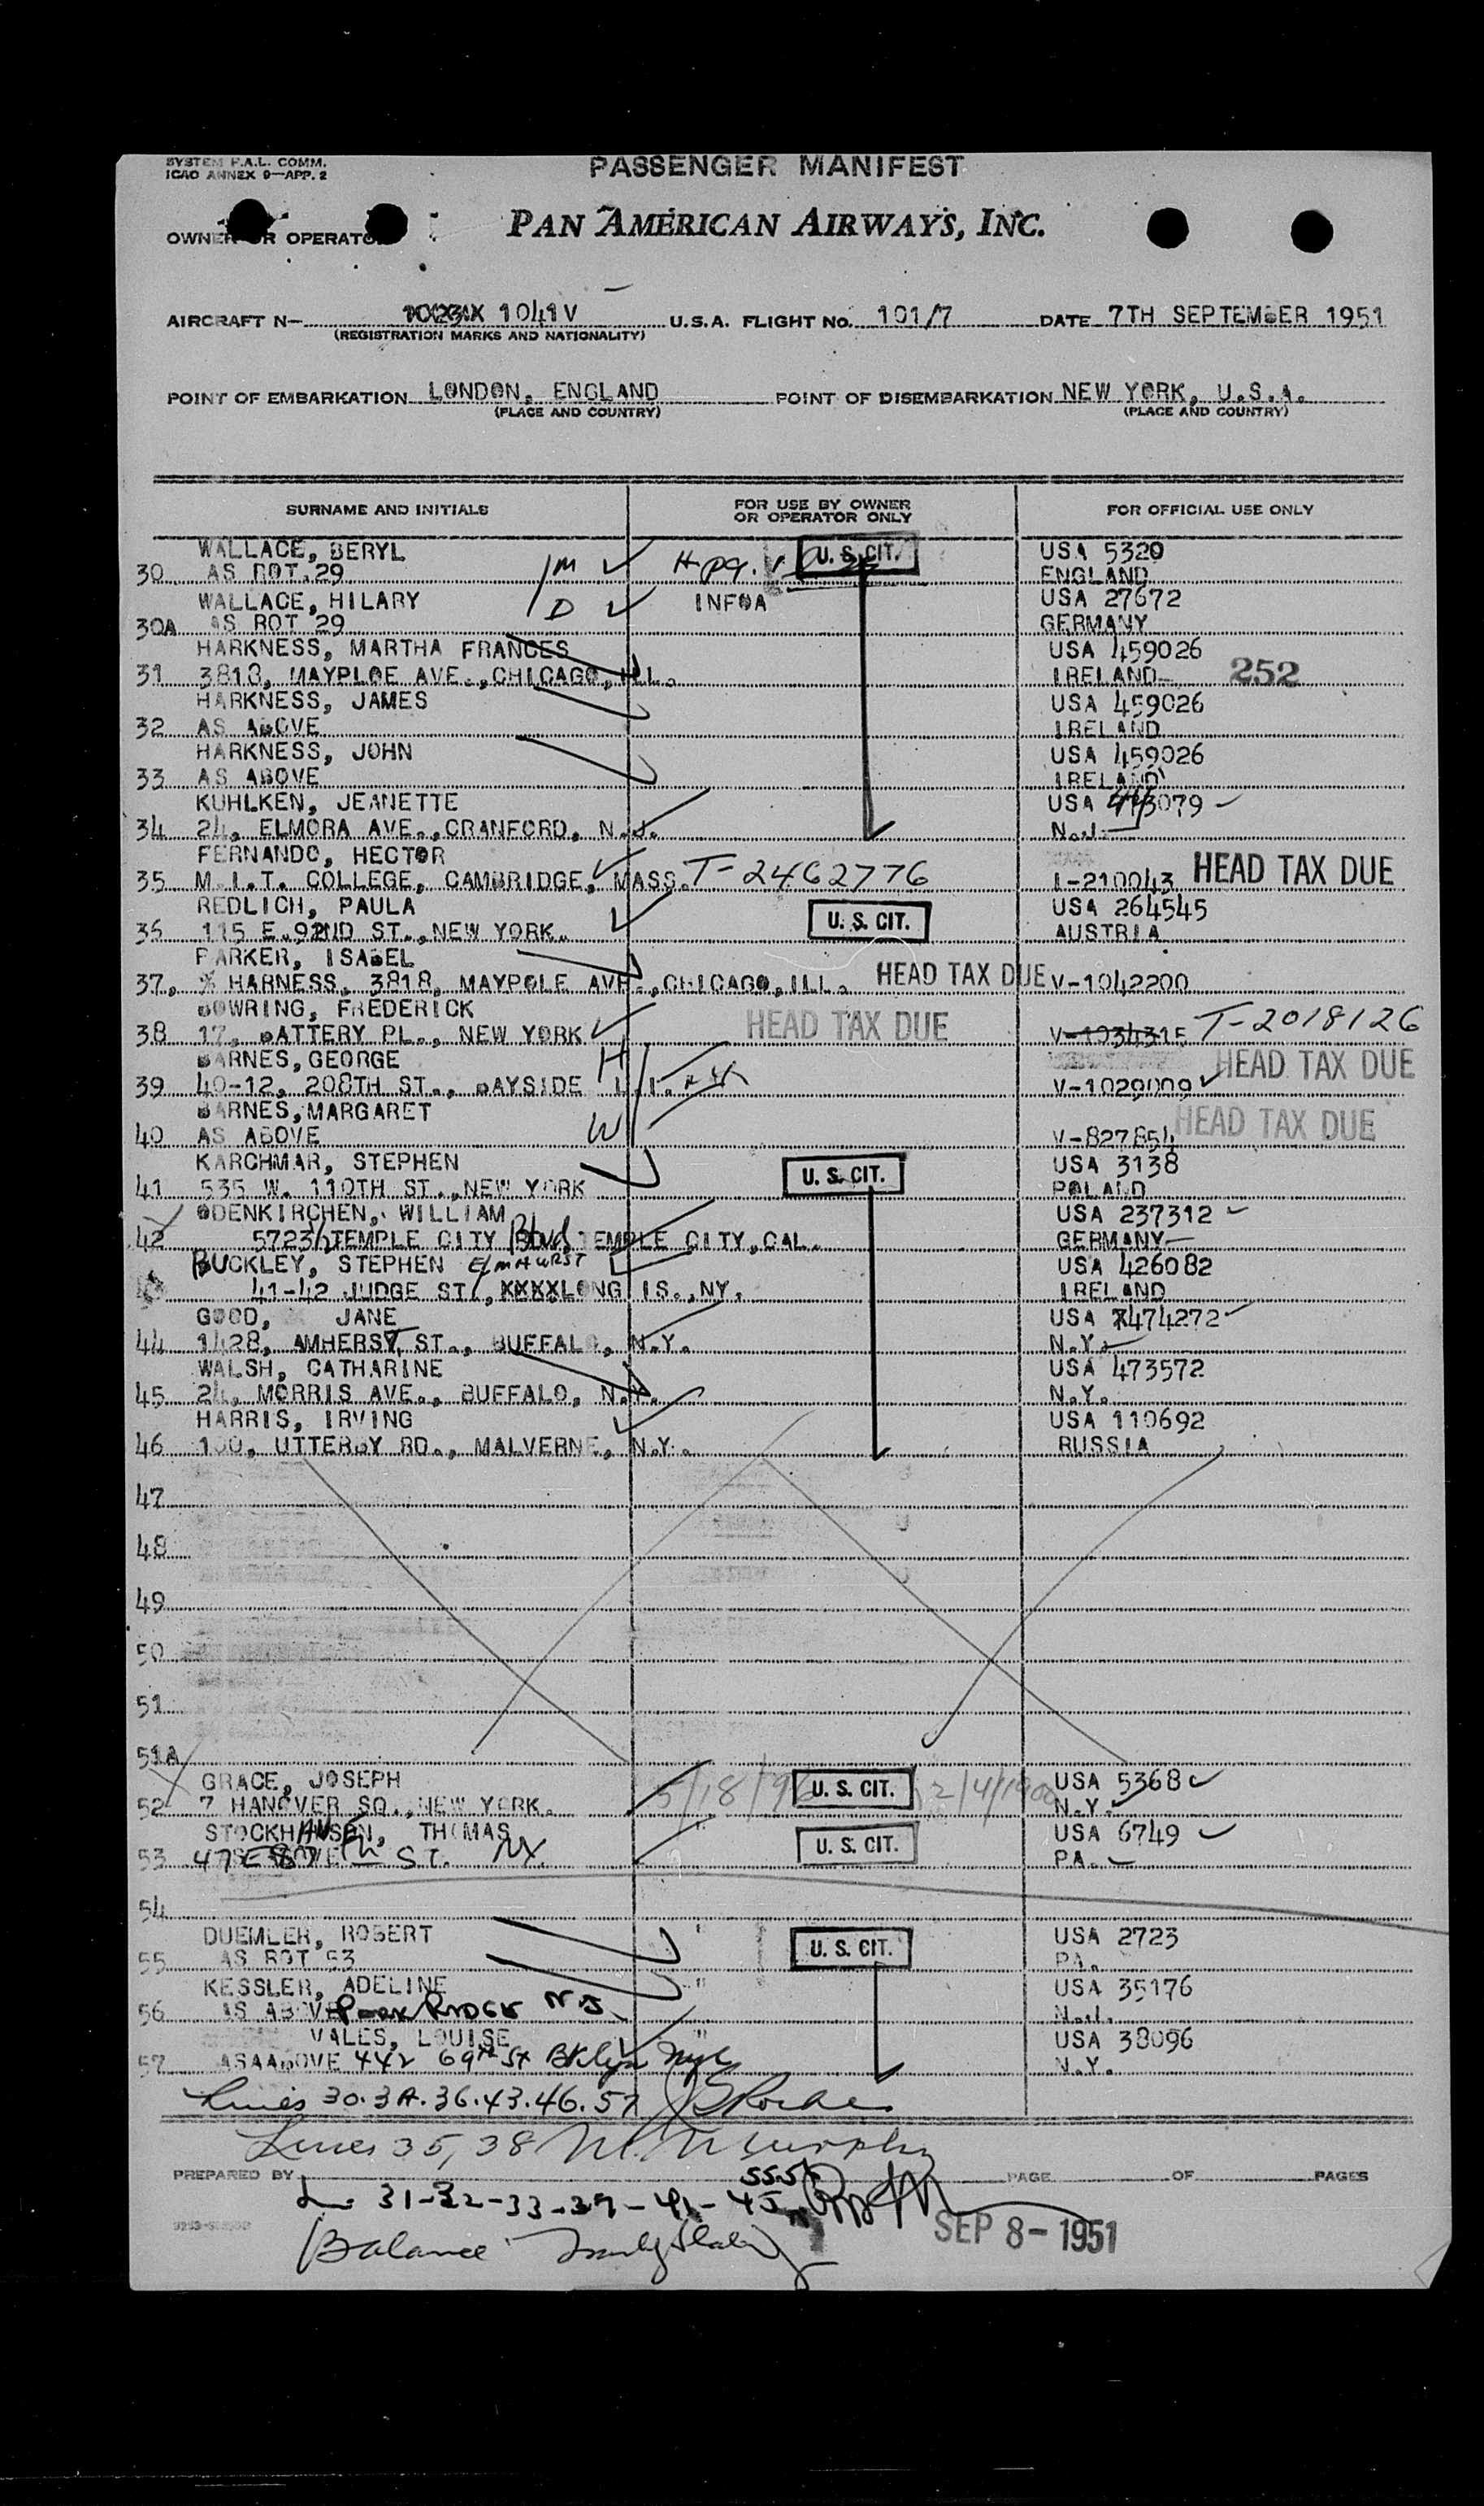 SYSTEM F.A.L. COMM.
ICAO ANNEX 9—APP. 2
PASSENGER MANIFEST
OWNER OR OPERATOR
PAN AMERICAN AIRWAYS, INC.
AIRCRAFT N— 1041V U.S.A. FLIGHT NO. 101/7 DATE 7TH SEPTEMBER 1951
(REGISTRATION MARKS AND NATIONALITY)
POINT OF EMBARKATION LONDON, ENGLAND POINT OF DISEMBARKATION NEW YORK, U.S.A.
(PLACE AND COUNTRY) (PLACE AND COUNTRY)
SURNAME AND INITIALS FOR USE BY OWNER OR OPERATOR ONLY FOR OFFICIAL USE ONLY
WALLACE, BERYL M U.S. CIT. USA 5320
30 AS ROT.29 ENGLAND
WALLACE, HILARY D INFOA USA 27672
30A AS ROT 29 GERMANY
HARKNESS, MARTHA FRANCES USA 459026
31 3818, MAYPLOE AVE.,CHICAGO,ILL. IRELAND 252
HARKNESS, JAMES USA 459026
32 AS ABOVE IRELAND
HARKNESS, JOHN USA 459026
33 AS ABOVE IRELAND
KUHLKEN, JEANETTE USA 3079
34 24, ELMORA AVE.,CRANFORD, N.J. N.J.
FERNANDO, HECTOR
35 M.I.T. COLLEGE, CAMBRIDGE, MASS. T-2462776 I-210043 HEAD TAX DUE
REDLICH, PAULA USA 264545
36 115 E.92ND ST.,NEW YORK. U. S. CIT. AUSTRIA
PARKER, ISABEL
37, % HARNESS, 3818, MAYPOLE AVE.,CHICAGO,ILL. HEAD TAX DUE V-1042200
BOWRING, FREDERICK
38 17, BATTERY PL., NEW YORK HEAD TAX DUE V-1034315 T-2018126
BARNES,GEORGE H HEAD TAX DUE
39 40-12, 208TH ST., BAYSIDE L.I. V-1029009
BARNES,MARGARET W HEAD TAX DUE
40 AS ABOVE V-827854
KARCHMAR, STEPHEN U. S. CIT. USA 3138
41 535 W. 110TH ST.,NEW YORK POLAND
ODENKIRCHEN, WILLIAM USA 237312
42 5723½ TEMPLE CITY Blvd, TEMPLE CITY,CAL. GERMANY
BUCKLEY, STEPHEN ELMHURST USA 426082
41-42 JUDGE ST, XXXXLONG IS.,NY. IRELAND
GOOD, JANE USA 474272
44 1428, AMHERST ST., BUFFALO, N.Y. N.Y.
WALSH, CATHARINE USA 473572
45 24, MORRIS AVE., BUFFALO, N.Y. N.Y.
HARRIS, IRVING USA 110692
46 100, UTTERBY RD., MALVERNE, N.Y. RUSSIA
47
48
49
50
51
51A
GRACE, JOSEPH 5/18/96 U. S. CIT. 2/4/1900 USA 5368
52 7 HANOVER SQ.,NEW YORK. N.Y.
STOCKHAUSEN, THOMAS " U. S. CIT. USA 6749
53 47 E 87th ST. NY. PA.
54
DUEMLER, ROBERT " U. S. CIT. USA 2723
55 AS ROT 53 PA.
KESSLER, ADELINE " USA 35176
56 AS ABOVE PARK RIDGE NJ N.J.
VALES, LOUISE " USA 38096
57 ASAABOVE 442 69th St Bklyn NY N.Y.
Lines 30.3A.36.43.46.57
Lines 35,38 M. Murphy
PREPARED BY PAGE OF PAGES
L. 31-32-33-37-41-45 5556
Balance
SEP 8-1951